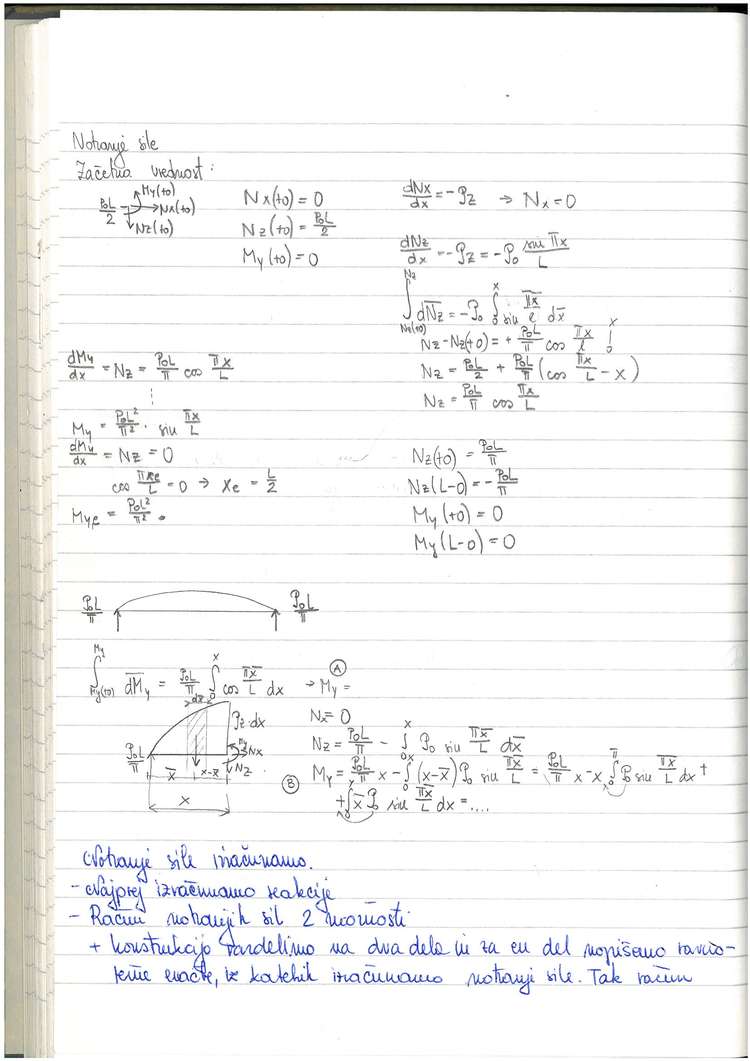 Notranje sile
Začetna vrednost:
My(+0)
P₀L/2 → Nx(+0)
Nz(+0)
Nx(+0) = 0
Nz(+0) = P₀L/2
My(+0) = 0
dNx/dx = -Pz → Nx = 0
dNz/dx = -Pz = -P₀ sin πx/L
∫_{Nz(+0)}^{Nz} dN̄z = -P₀ ∫_0^x sin πx̄/l dx̄
Nz - Nz(+0) = + P₀L/π cos πx/l |_0^x
Nz = P₀L/2 + P₀L/π (cos πx/L - x)
Nz = P₀L/π cos πx/L
dMy/dx = Nz = P₀L/π cos πx/L
My = P₀L²/π² · sin πx/L
dMy/dx = Nz = 0
cos πxe/L = 0 → xe = L/2
Mye = P₀L²/π² .
Nz(+0) = P₀L/π
Nz(L-0) = -P₀L/π
My(+0) = 0
My(L-0) = 0
P₀L/π P₀L/π
∫_{My(+0)}^{My} dM̄y = P₀L/π ∫_0^x cos πx̄/L dx → My =
A
dx̄
Pz·dx
P₀L/π My Nx
Nz
x̄ x-x̄
x
B
Nx = 0
Nz = P₀L/π - ∫_0^x P₀ sin πx̄/L dx̄
My = P₀L/π x - ∫_0^x (x-x̄) P₀ sin πx̄/L = P₀L/π x - x ∫_0^π P₀ sin πx̄/L dx +
+ ∫ x̄ P₀ sin πx̄/L dx = ....
Notranje sile izračunamo.
- Najprej izračunamo reakcije
- Račun notranjih sil 2 možnosti
+ konstrukcijo razdelimo na dva dela in za en del napišemo ravno-
težne enačbe, iz katerih izračunamo notranje sile. Tak račun